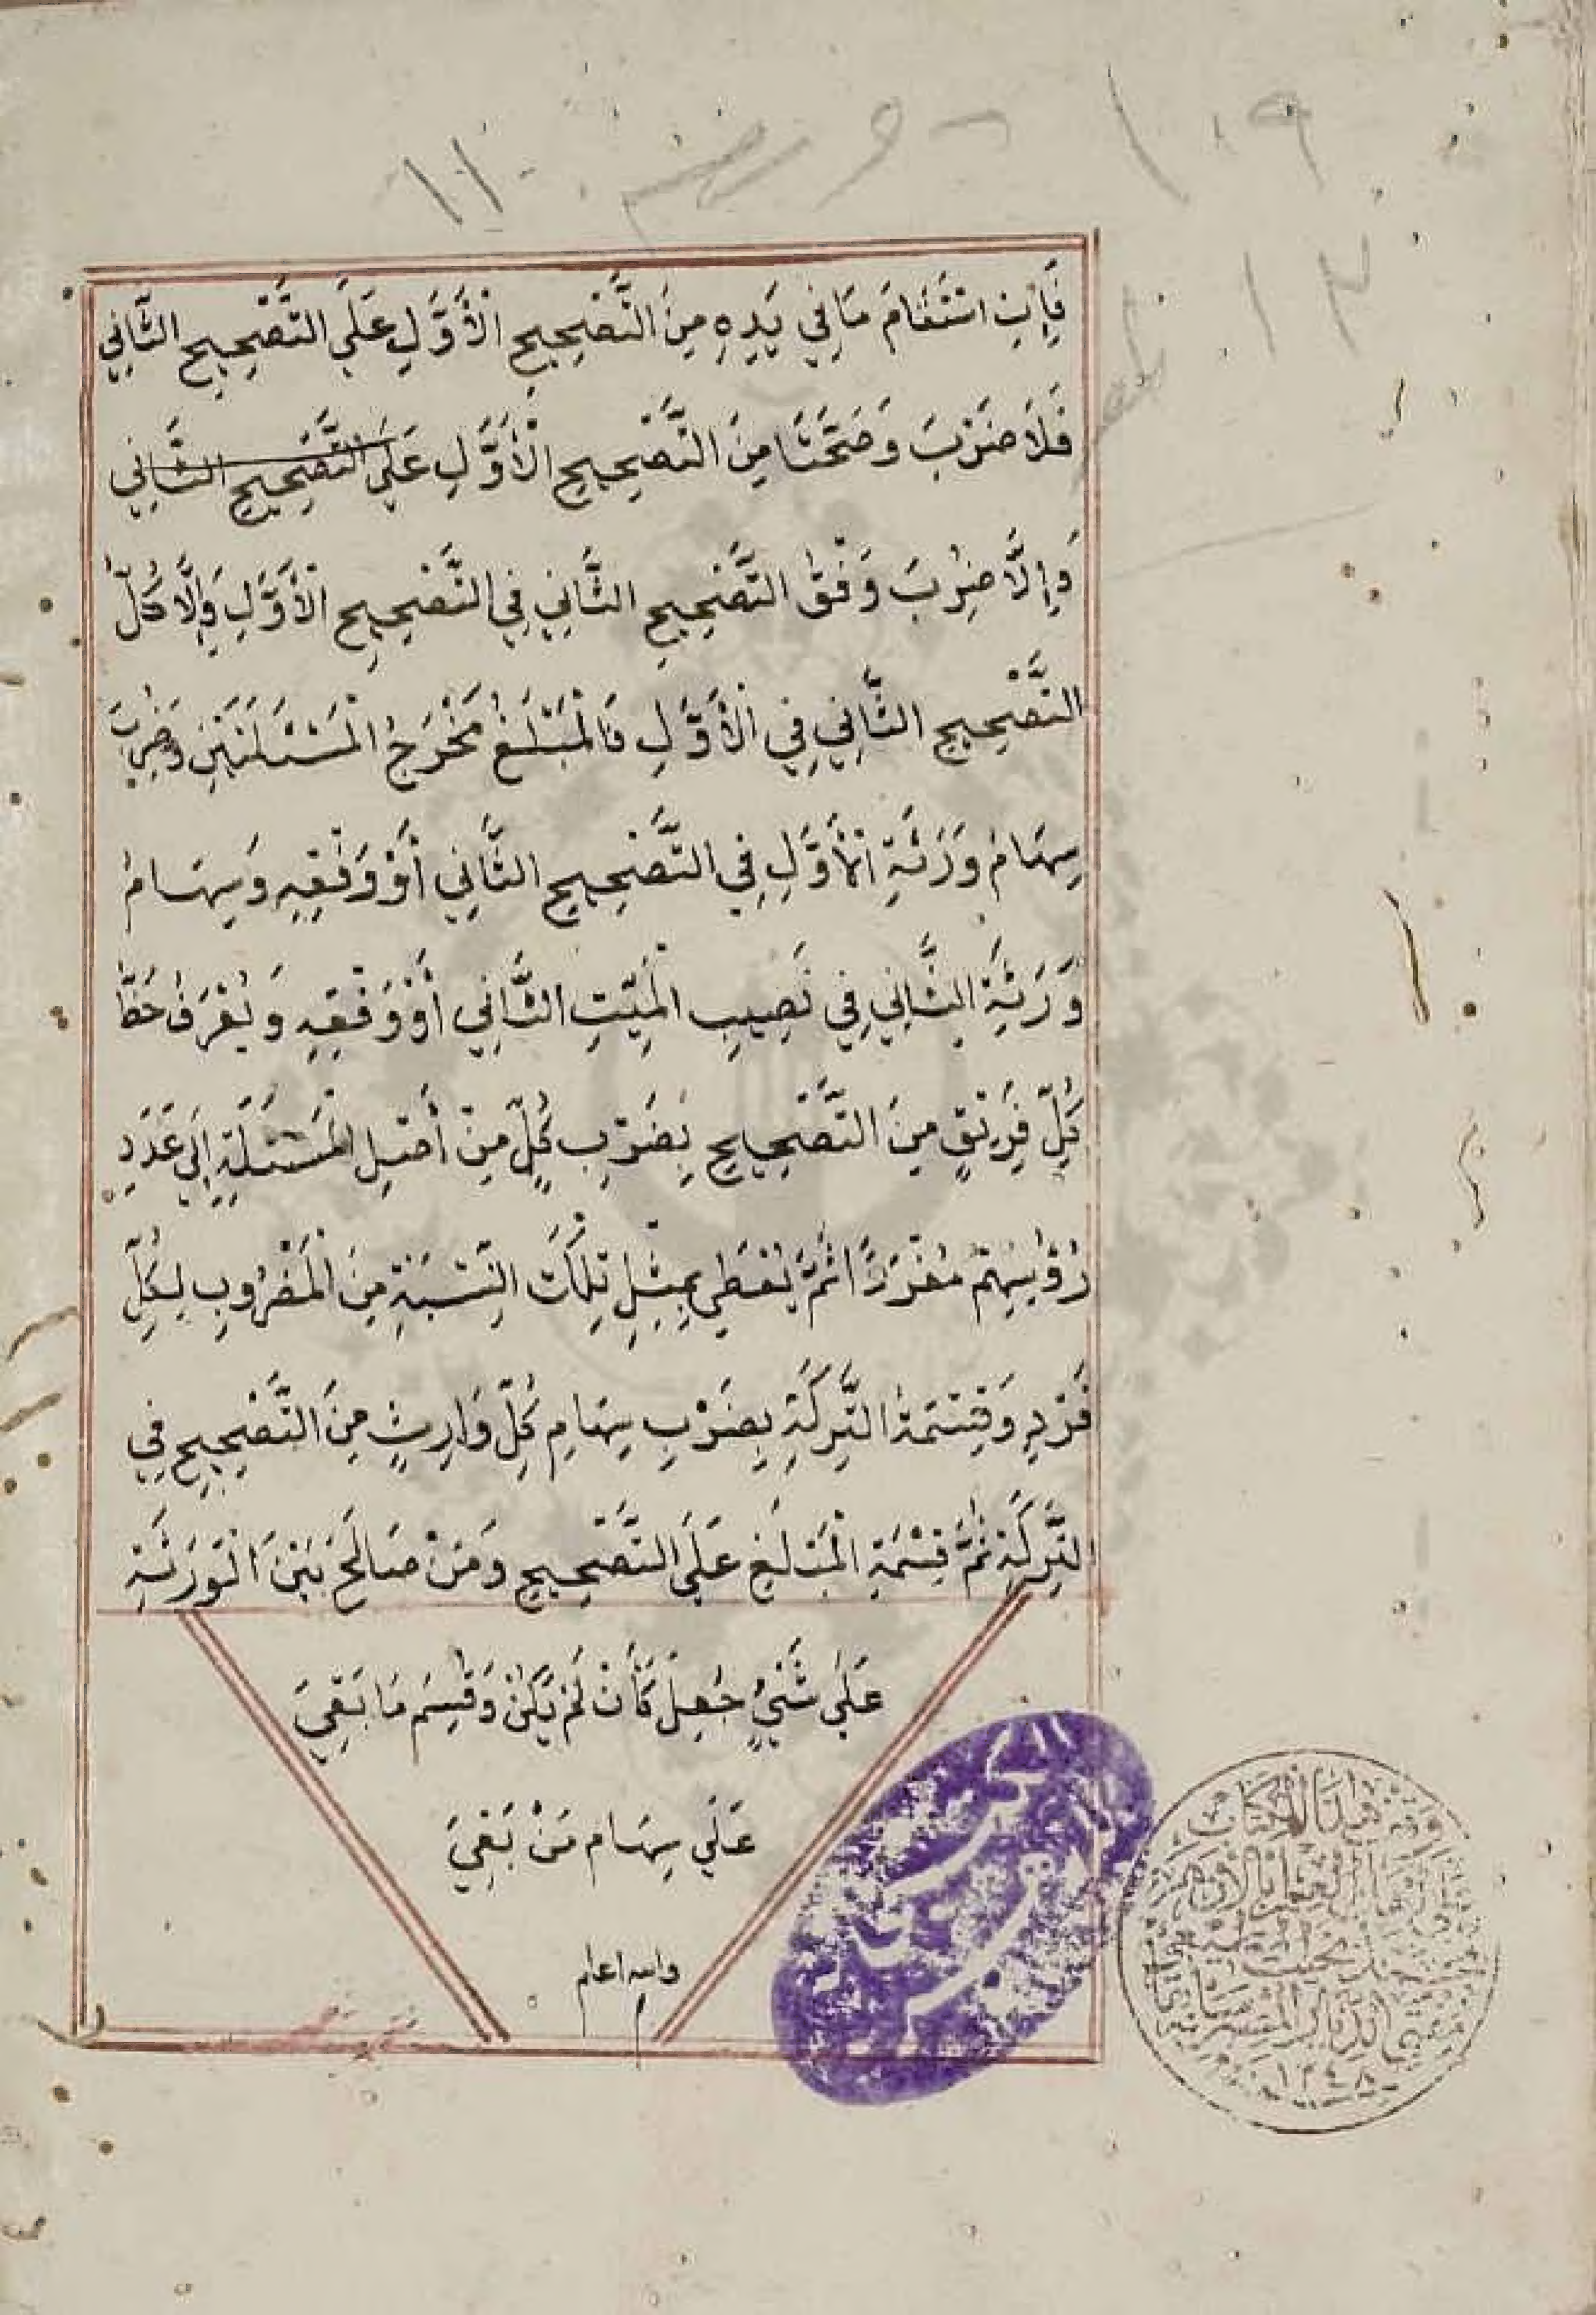 ١٠٩
١١
١٢
فَإِنِ اسْتَقَامَ مَا فِي يَدِهِ مِنَ التَّصْحِيحِ الْأَوَّلِ عَلَى التَّصْحِيحِ الثَّانِي
فَلَا ضَرْبَ وَصَحَّتَا مِنَ التَّصْحِيحِ الْأَوَّلِ عَلَى التَّصْحِيحِ الثَّانِي
وَإِلَّا ضُرِبَ وَفْقُ التَّصْحِيحِ الثَّانِي فِي التَّصْحِيحِ الْأَوَّلِ وَإِلَّا كُلُّ
التَّصْحِيحِ الثَّانِي فِي الْأَوَّلِ فَالْمَبْلَغُ مَخْرَجُ الْمَسْئَلَتَيْنِ وَضُرِبَ
سِهَامُ وَرَثَةِ الْأَوَّلِ فِي التَّصْحِيحِ الثَّانِي أَوْ وَفْقِهِ وَسِهَامُ
وَرَثَةِ الثَّانِي فِي نَصِيبِ الْمَيِّتِ الثَّانِي أَوْ وَفْقِهِ وَيُعْرَفُ حَظُّ
كُلِّ فَرِيْقٍ مِنَ التَّصْحِيحِ بِضَرْبِ كُلٍّ مِنْ أَصْلِ الْمَسْئَلَةِ إِلَى عَدَدِ
رُؤُسِهِمْ مُفْرَدًا ثُمَّ يُعْطَى بِمِثْلِ تِلْكَ النِّسْبَةِ مِنَ الْمَضْرُوبِ لِكُلِّ
فَرْدٍ وَقِسْمَةُ التَّرِكَةِ بِضَرْبِ سِهَامِ كُلِّ وَارِثٍ مِنَ التَّصْحِيحِ فِي
التَّرِكَةِ ثُمَّ قِسْمَةِ الْمَبْلَغِ عَلَى التَّصْحِيحِ وَمَنْ صَالَحَ بَيْنَ الْوَرَثَةِ
عَلَى شَيْءٍ جُعِلَ كَأَنْ لَمْ يَكُنْ وَقُسِمَ مَا بَقِيَ
عَلَى سِهَامِ مَنْ بَقِيَ
والله اعلم
م
١٢٤٨